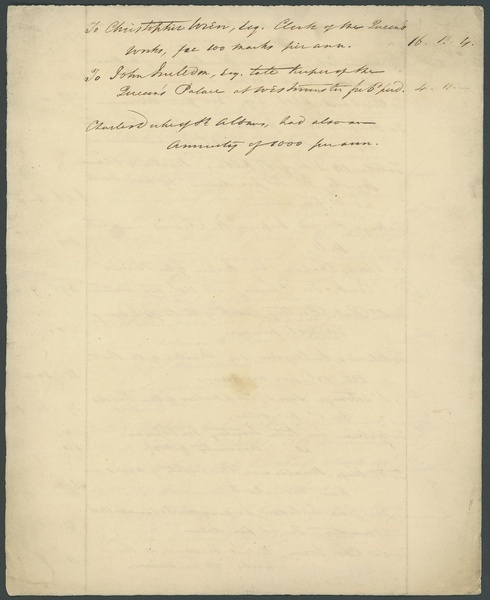 To Christopher Wren, Esq. Clerk of the Queen's
Works, fee 100 marks per ann. 16. 1. 4.
To John Incledon, Esq. late Keeper of the
Queen's Palace at Westminster 4
Charles Duke of St Albans, had also an
Annuity of 1000 per ann.